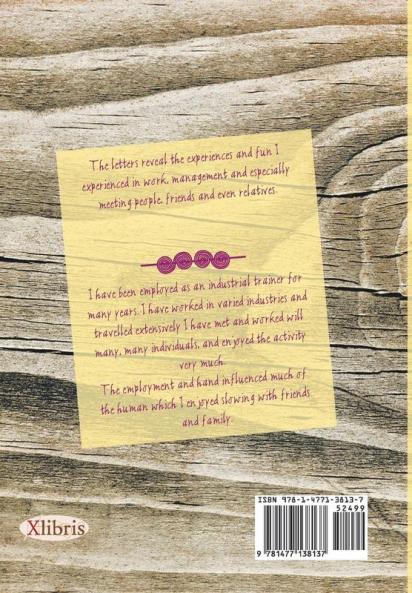 The letters reveal the experiences and fun I
experienced in work, management and especially
meeting people, friends and even relatives.
I have been employed as an industrial trainer for
many years. I have worked in varied industries and
travelled extensively I have met and worked will
many, many individuals, and enjoyed the activity
very much.
The employment and hand influenced much of
the human which I enjoyed slowing with friends
and family.
Xlibris
ISBN 978-1-4771-3813-7
52499
9 781477 138137